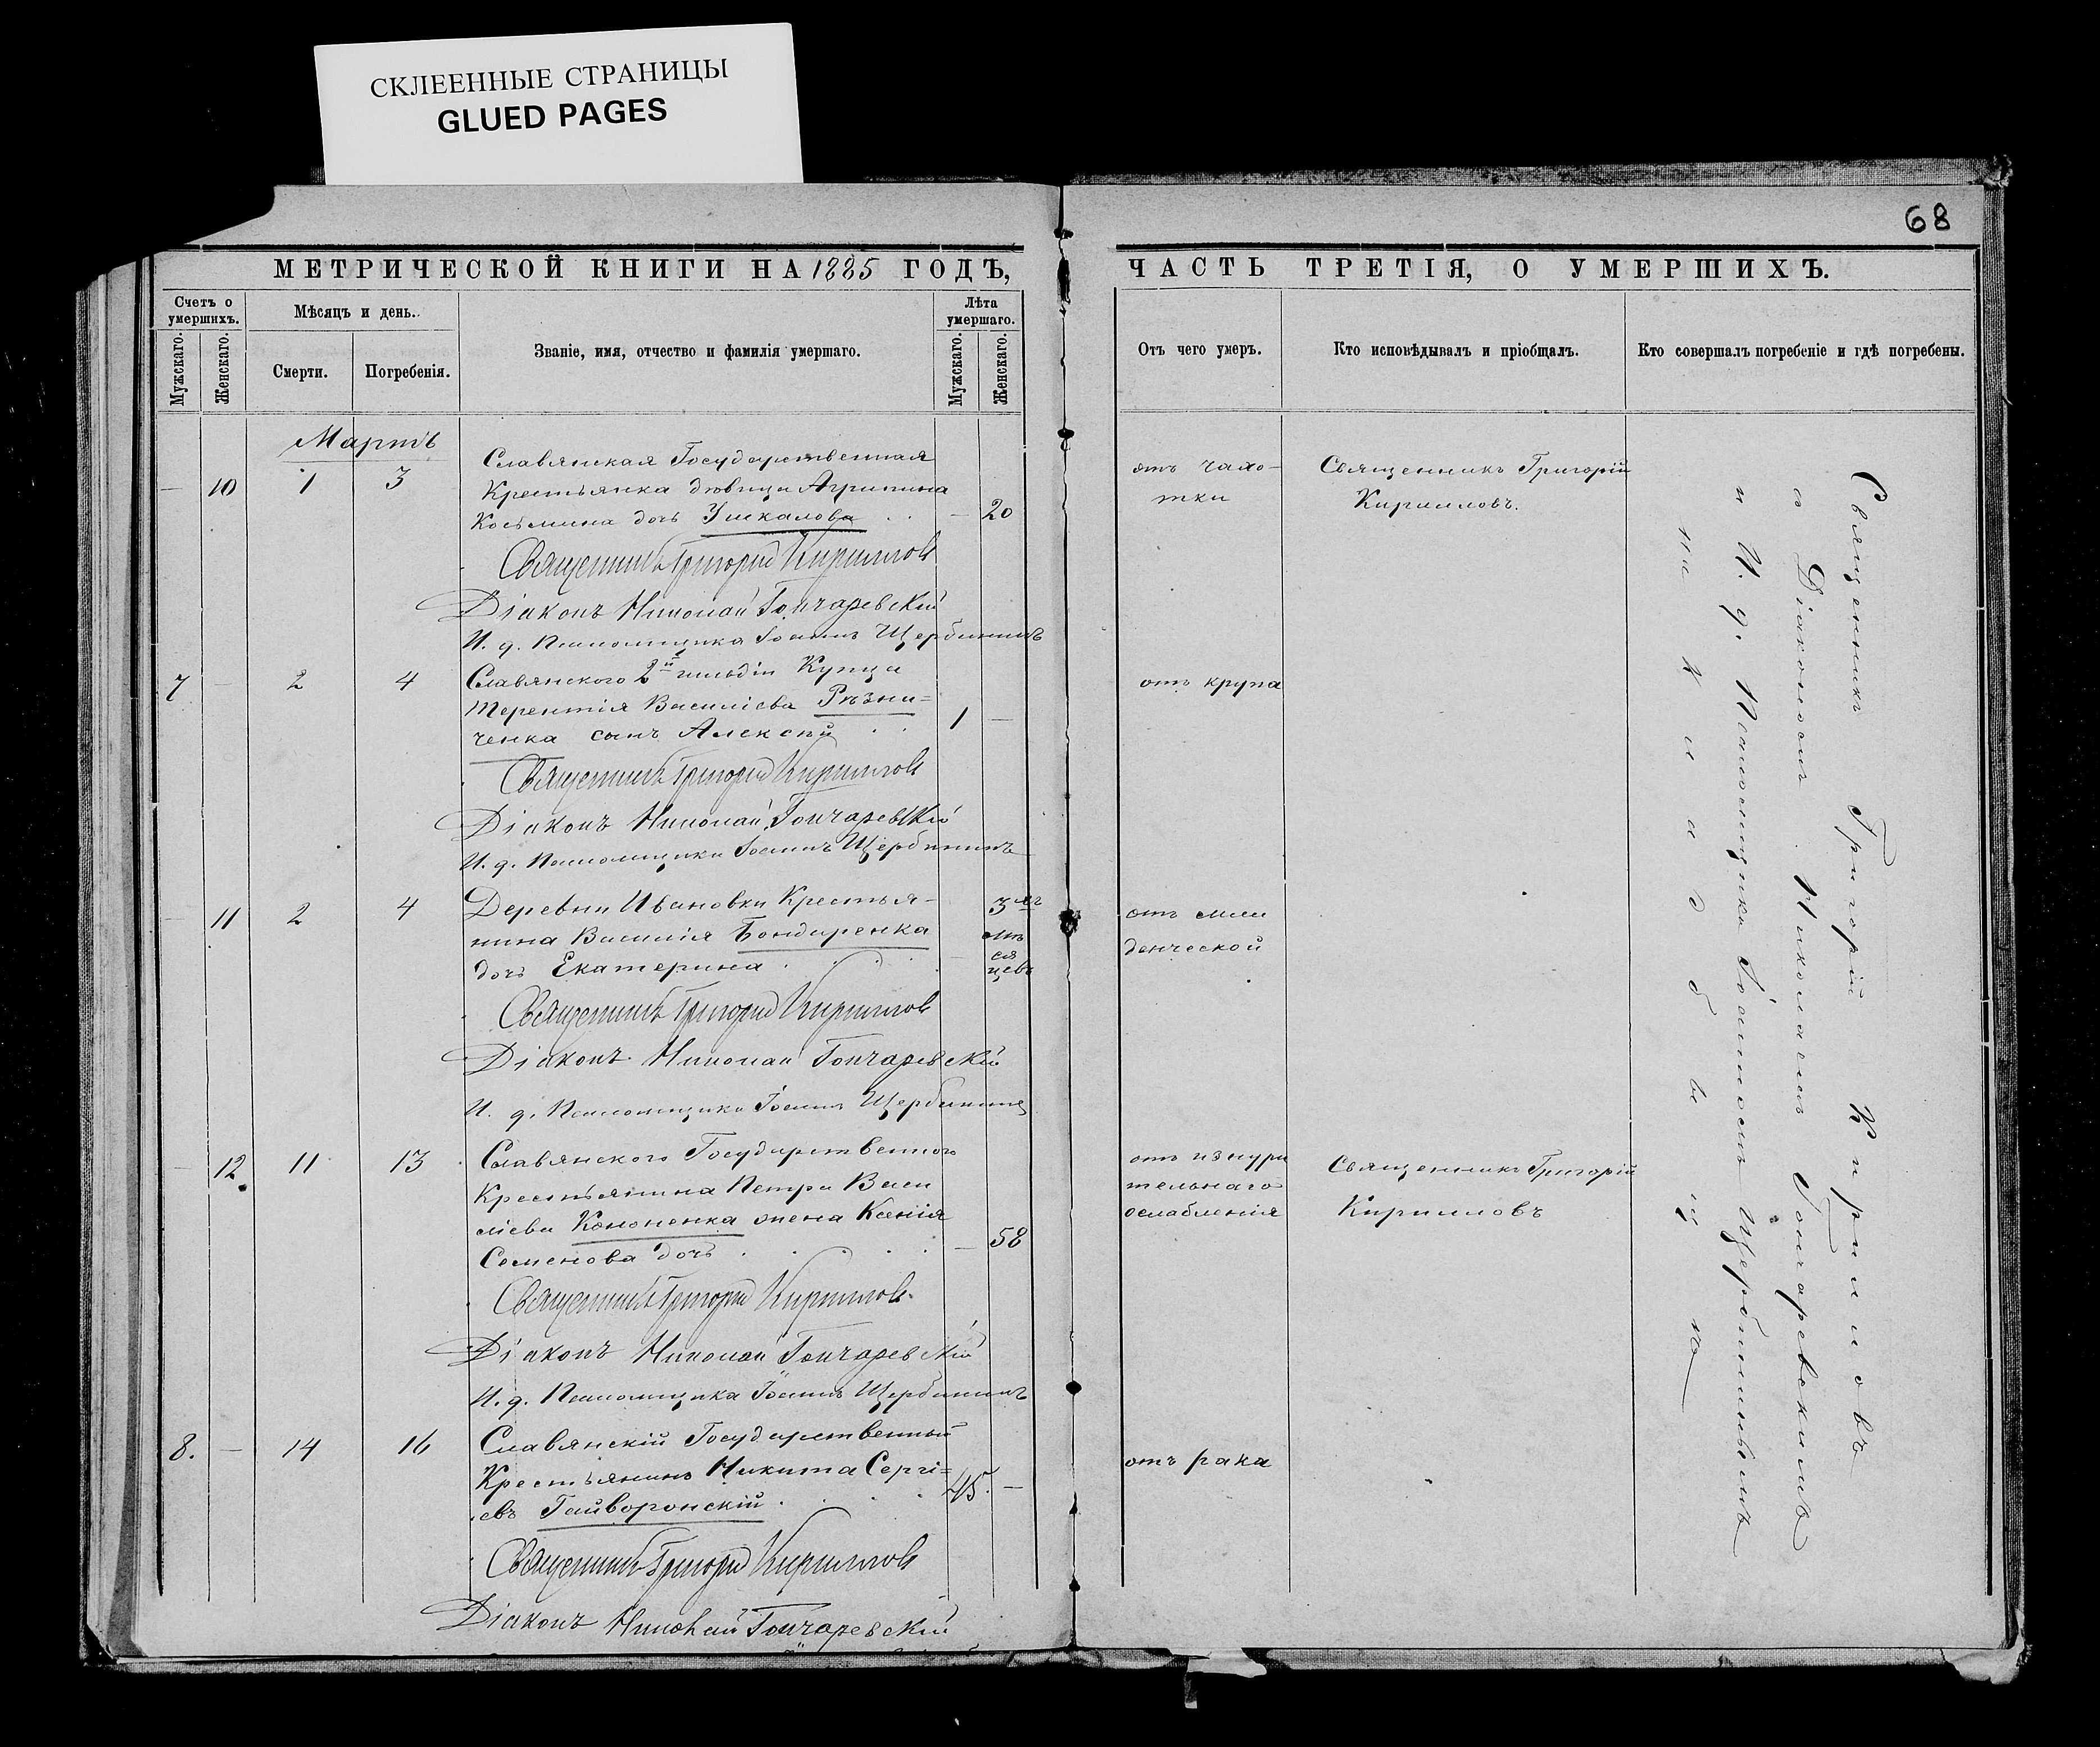 СКЛЕЕННЫЕ СТРАНИЦЫ
GLUED PAGES
68
МЕТРИЧЕСКОЙ КНИГИ НА 1885 ГОДЪ,
ЧАСТЬ ТРЕТІЯ, О УМЕРШИХЪ.
Счетъ о умершихъ.
Мужскаго.
Женскаго.
Мѣсяцъ и день.
Смерти.
Погребенія.
Званіе, имя, отчество и фамилія умершаго.
Лѣта умершаго.
Мужскаго.
Женскаго.
Отъ чего умеръ.
Кто исповѣдывалъ и пріобщалъ.
Кто совершалъ погребеніе и гдѣ погребены.
Мартъ
— 10 1 3
Славянская Государственная
Крестьянка дѣвица Агрипина
Косьмина дочь Ушкалова . . — 20
отъ чахо-
тки
Священникъ Григорій
Кирилловъ.
Священникъ Григорій Кирилловъ
Діаконъ Николай Гончаревскій
И. д. Псаломщика Іоаннъ Щербининъ
7 — 2 4
Славянского 2й гильдіи Купца
Терентія Василіева Рѣзни-
ченка сынъ Алексѣй . . 1 —
отъ крупа
Священникъ Григорій Кирилловъ
Діаконъ Николай Гончаревскій
И. д. Псаломщика Іоаннъ Щербининъ
— 11 2 4
Деревни Ивановки Крестья-
нина Василія Бондаренка
дочь Екатерина . . . — 3хъ
мѣ
ся
цевъ
отъ мла
денческой
Священникъ Григорій Кирилловъ
Діаконъ Николай Гончаревскій
И. д. Псаломщика Іоаннъ Щербининъ
— 12 11 13
Славянского Государственного
Крестьянина Петра Васи
ліева Кононенка жена Ксенія
Семенова дочь . . . . — 58
отъ изнури
тельнаго
ослабленія
Священникъ Григорій
Кирилловъ
Священникъ Григорій Кирилловъ
Діаконъ Николай Гончаревскій
И. д. Псаломщика Іоаннъ Щербининъ
8. — 14 16
Славянскій Государственный
Крестьянинъ Никита Сергі-
евъ Гайворонскій . . . 45. —
отъ рака
Священникъ Григорій Кирилловъ
Діаконъ Николай Гончаревскій
Священникъ Григорій Кирилловъ
с Діакономъ Николаемъ Гончаревскимъ
и И. д. Псаломщика Іоанномъ Щербининымъ
на кладбищѣ